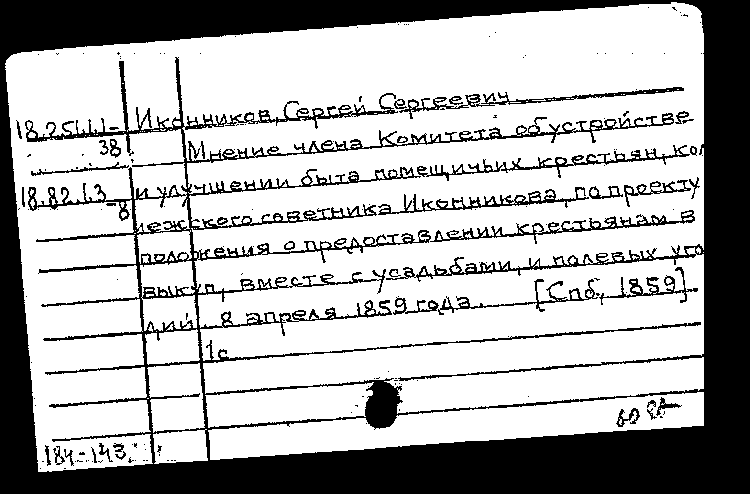 18.251.1.1- Иконников, Сергей Сергеевич
38 Мнение члена Комитета об устройстве
18.82.1.3 и улучшении быта помещичьих крестьян, кол
-8 лежского советника Иконникова, по проекту
положения о предоставлении крестьянам в
выкуп, вместе с усадьбами, и полевых уго
дий. 8 апреля 1859 года. [Спб, 1859].
1с
184-143.